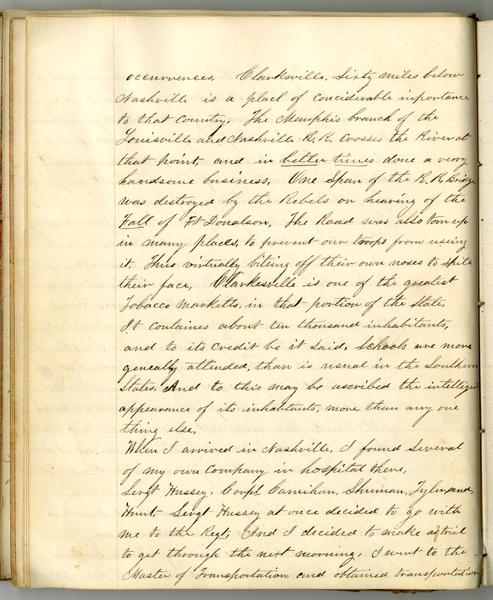 occurrences. Clarksville, Sixty miles below
Nashville is a place of conciderable inportance
to that Country. The Memphis branch of the
Louisville and Nashville R. R. Crosses the River at
that point, and in better times done a verry
handsome business. One Span of the R. R. Bridge
was destroyed by the Rebels on hearing of the
Fall of Ft Donalson. The Road was also torn up
in many places, to prevent our troops from useing
it. Thus virtually biteing off their own noses to spite
their face. Clarkesville is one of the greatest
Tobacco marketts, in that portion of the State.
It containes about ten thousand inhabitants,
and to its credit be it said, Schools are more
geneally attended, than is usual in the Southern
States. And to this may be ascribed the intelligent
appearance of its inhabitants, more than any one
thing else.
When I arrived in Nashville, I found several
of my own Company in hospital there,
Sergt Hussey, Corpl Carnihan, Shuman, Tyler, and
Hunt. Sergt Hussey at once decided to go with
me to the Regt. And I decided to make a trial
to get through the next morning. I went to the
Master of Transportation and obtained transportation